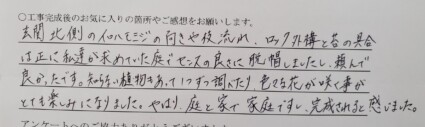 ○工事完成後のお気に入りの箇所やご感想をお願いします。
玄関北側のイロハモミジの向きや枝流れ、ロック外構と苔の具合
は正に私達が求めていた庭でセンスの良さに脱帽しましたし、頼んで
良かったです。知らない植物もあって1つずつ調べたり、色々な花が咲く事が
とても楽しみになりました。やはり、庭と家で家庭ですし、完成されると感じました。
アンケートへのご協力ありがとうございました